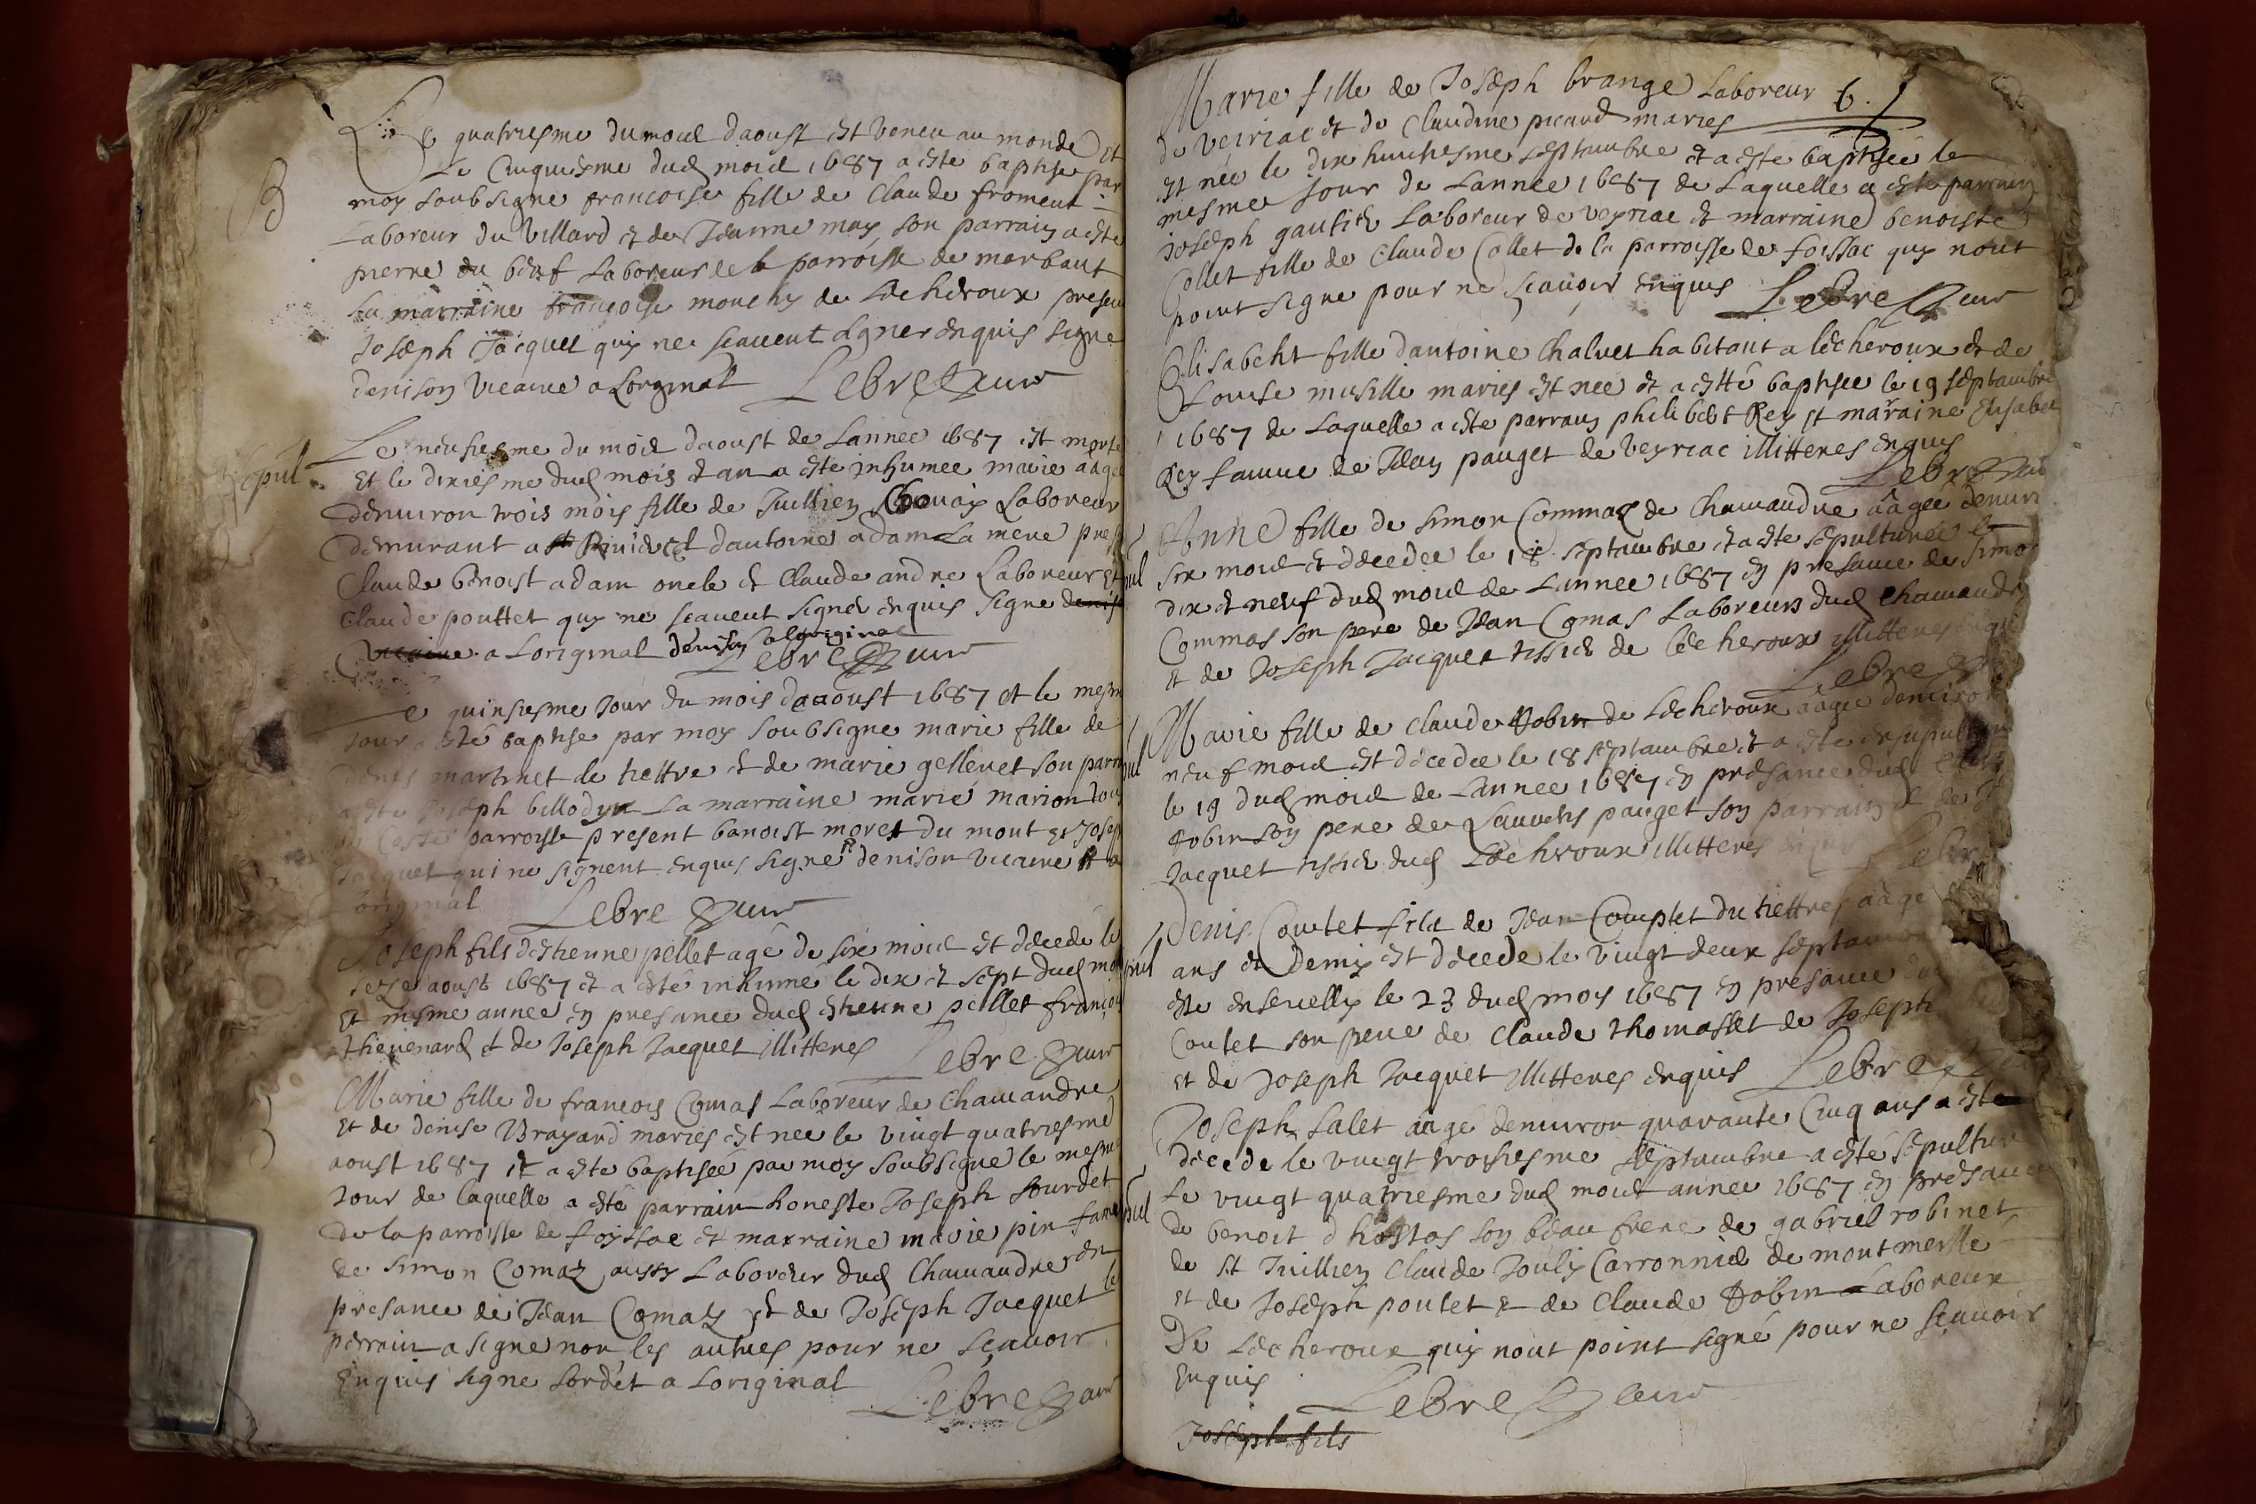 B
Le quatriesme du moid daoust est veneu au monde et
Le Cinquiesme dud moid 1687 a este baptise par
moy soubsigne francoise fille de Claude froment
Laboreur du villard et de Jeanne may son parrain a este
pierre du beuf Laboreur de la parroisse de marbaut
La marraine francoise mouchy de Lecheroux presen
Joseph Jacquet quy ne scauent signer enquis signe
denison vicaire a Lorginal Lebre Cure
sepul
Le neufiesme du moid daoust de Lannee 1687 est morte
Et le dixiesme dud mois et an a este inhumee marie aage
denuiron trois mois fille de Jullien Laboreur
demurant a et dantoine adam La mere pres
Claude benoist adam oncle et Claude andre Laboreur et
Claude pouttet quy ne scauent signer enquis signe denis
vicaire a Loriginal denison a loriginal
Lebre Cure
Le quinsiesme Jour du mois daoust 1687 et le mesme
Jour a esté baptise par moy soubsigne marie fille de
denis martinet le tiettre et de marie gelleret son parra
a este Joseph billodyn La marraine marie marion
de ceste parroisse present benoist moret du mont et Josep
Jacquet qui ne signent enquis signe denison vicaire a
original Lebre Cure
Joseph fils destienne pellet agé de six moid est décedé le
seze aoust 1687 et a esté inhumé le dix et sept dud mo
Et mesme annee en presance dud estienne pellet francoi
thieuenard et de Joseph Jacquet illitteres Lebre Cure
Marie fille de francois Comas Laboreur de Chamandre
Et de denise Brayard maries est nee le vingt quatriesme
aoust 1687 et a este baptisée par moy soubsigné le mesme
Jour de laquelle a esté parrain honeste Joseph sourdet
de la parroisse de foyssac et marraine marie pin fame
de simon Comaz aussy Laboreur dud Chamandre en
presance de Jean Comaz et de Joseph Jacquet le
parrain a signe non les autres pour ne scauoir
Enquis signe sordet a Loriginal
Lebre Cure
Marie fille de Joseph brange Laboreur 6.
de veiriac et de Claudine picard maries
est née le dix huictiesme septembre et a este baptisée le
mesme Jour de Lannee 1687 de Laquelle a este parrain
Joseph gautier Laboreur de veyriac et marraine benoiste
Collet fille de Claude Collet de la parroisse de foissac quy nont
point signe pour ne scauoir enquis Lebre Cure
Elisabeht fille dantoine Chaluet habitant a lecheroux et de
Louise musille maries est nee et a estté baptisee le 19 septambre
1687 de Laquelle a este parrain philibert Rey et marraine Elisabet
Rey famme de Jean pauget de veyriac illitteres enquis
Lebre Cure
Anne fille de simon Commaz de Chamandre aâgee denuir
pul
six moid et décedee le 18 septambre et a este sépulturée le
dix et neuf dud moid de Lannee 1687 en presance de simo
Commas son pere de Jean Comas Laboreurs dud Chamandre
et de Joseph Jacquet tissier de lecheroux illitteres
Lebre
Marie fille de Claude Robin de Lecheroux aagee denuiron
pul
neuf moid est décedee le 18 septambre et a este
le 19 dud moid de Lannee 1687 en presance dud
Robin son pere de Lauuens pauget son parrain et de
Jacquet tissier dud Lecheroux illitteres Lebre
Denis Coutet fils de Jean Couptet du tiettre aagé
pul
ans et Demy est décede le vingt deux septambre
este enseuelly le 23 dud moy 1687 en presance du
Coutet son pere de Claude thomasset de Joseph
et de Joseph Jacquet illitteres enquis Lebre
Joseph Salet aagé denuiron quarante Cinq ans a este
décede le vingt troisiesme septambre a esté sépultur
pul
Le vingt quatriesme dud moid annee 1687 en presance
de benoit dhostas son beau frere de gabriel robinet
de st Jullien Claude Joulix Carronnier de montmerlle
et de Joseph poutet et de Claude Robin Laboreur
De Lecheroux quy nont point signé pour ne scauoir
Enquis Lebre Cure
Joseph fils